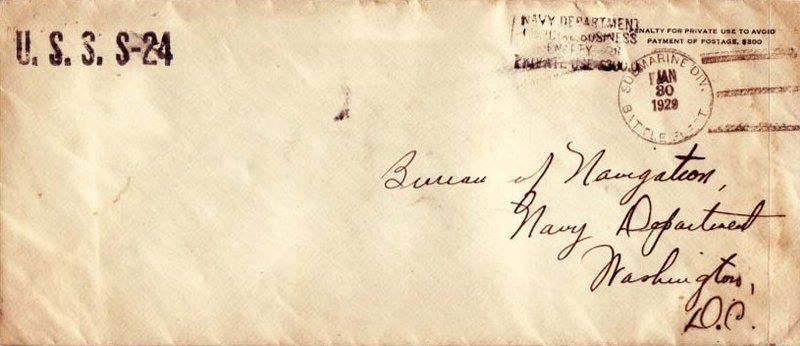 U. S. S. S-24
NAVY DEPARTMENT
BUSINESS
PRIVATE USE $300.0
PENALTY FOR PRIVATE USE TO AVOID
PAYMENT OF POSTAGE, $300
SUBMARINE DIV.
JAN
30
1929
BATTLE FLEET
Bureau of Navigation,
Navy Department
Washington,
D.C.